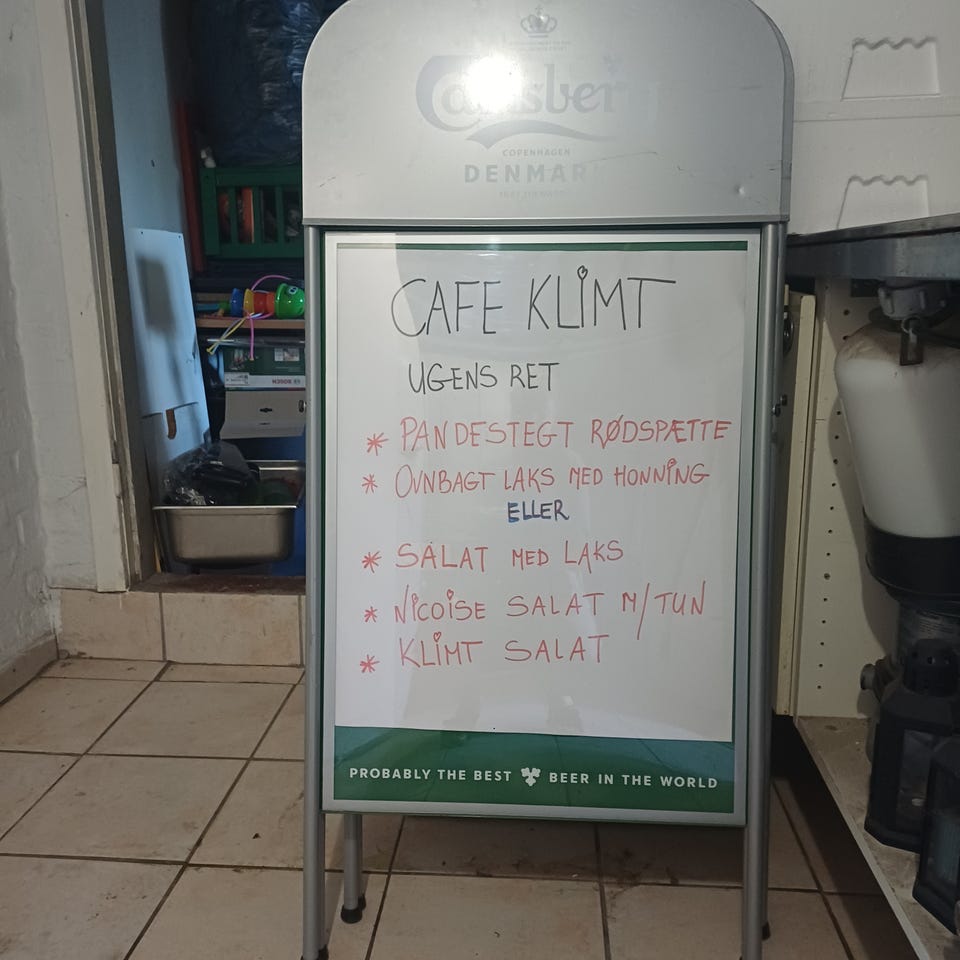 Carlsberg
COPENHAGEN
DENMARK
CAFE KLIMT
UGENS RET
* PANDESTEGT RØDSPÆTTE
* OVNBAGT LAKS MED HONNING
ELLER
* SALAT MED LAKS
* NICOISE SALAT M/TUN
* KLIMT SALAT
PROBABLY THE BEST BEER IN THE WORLD